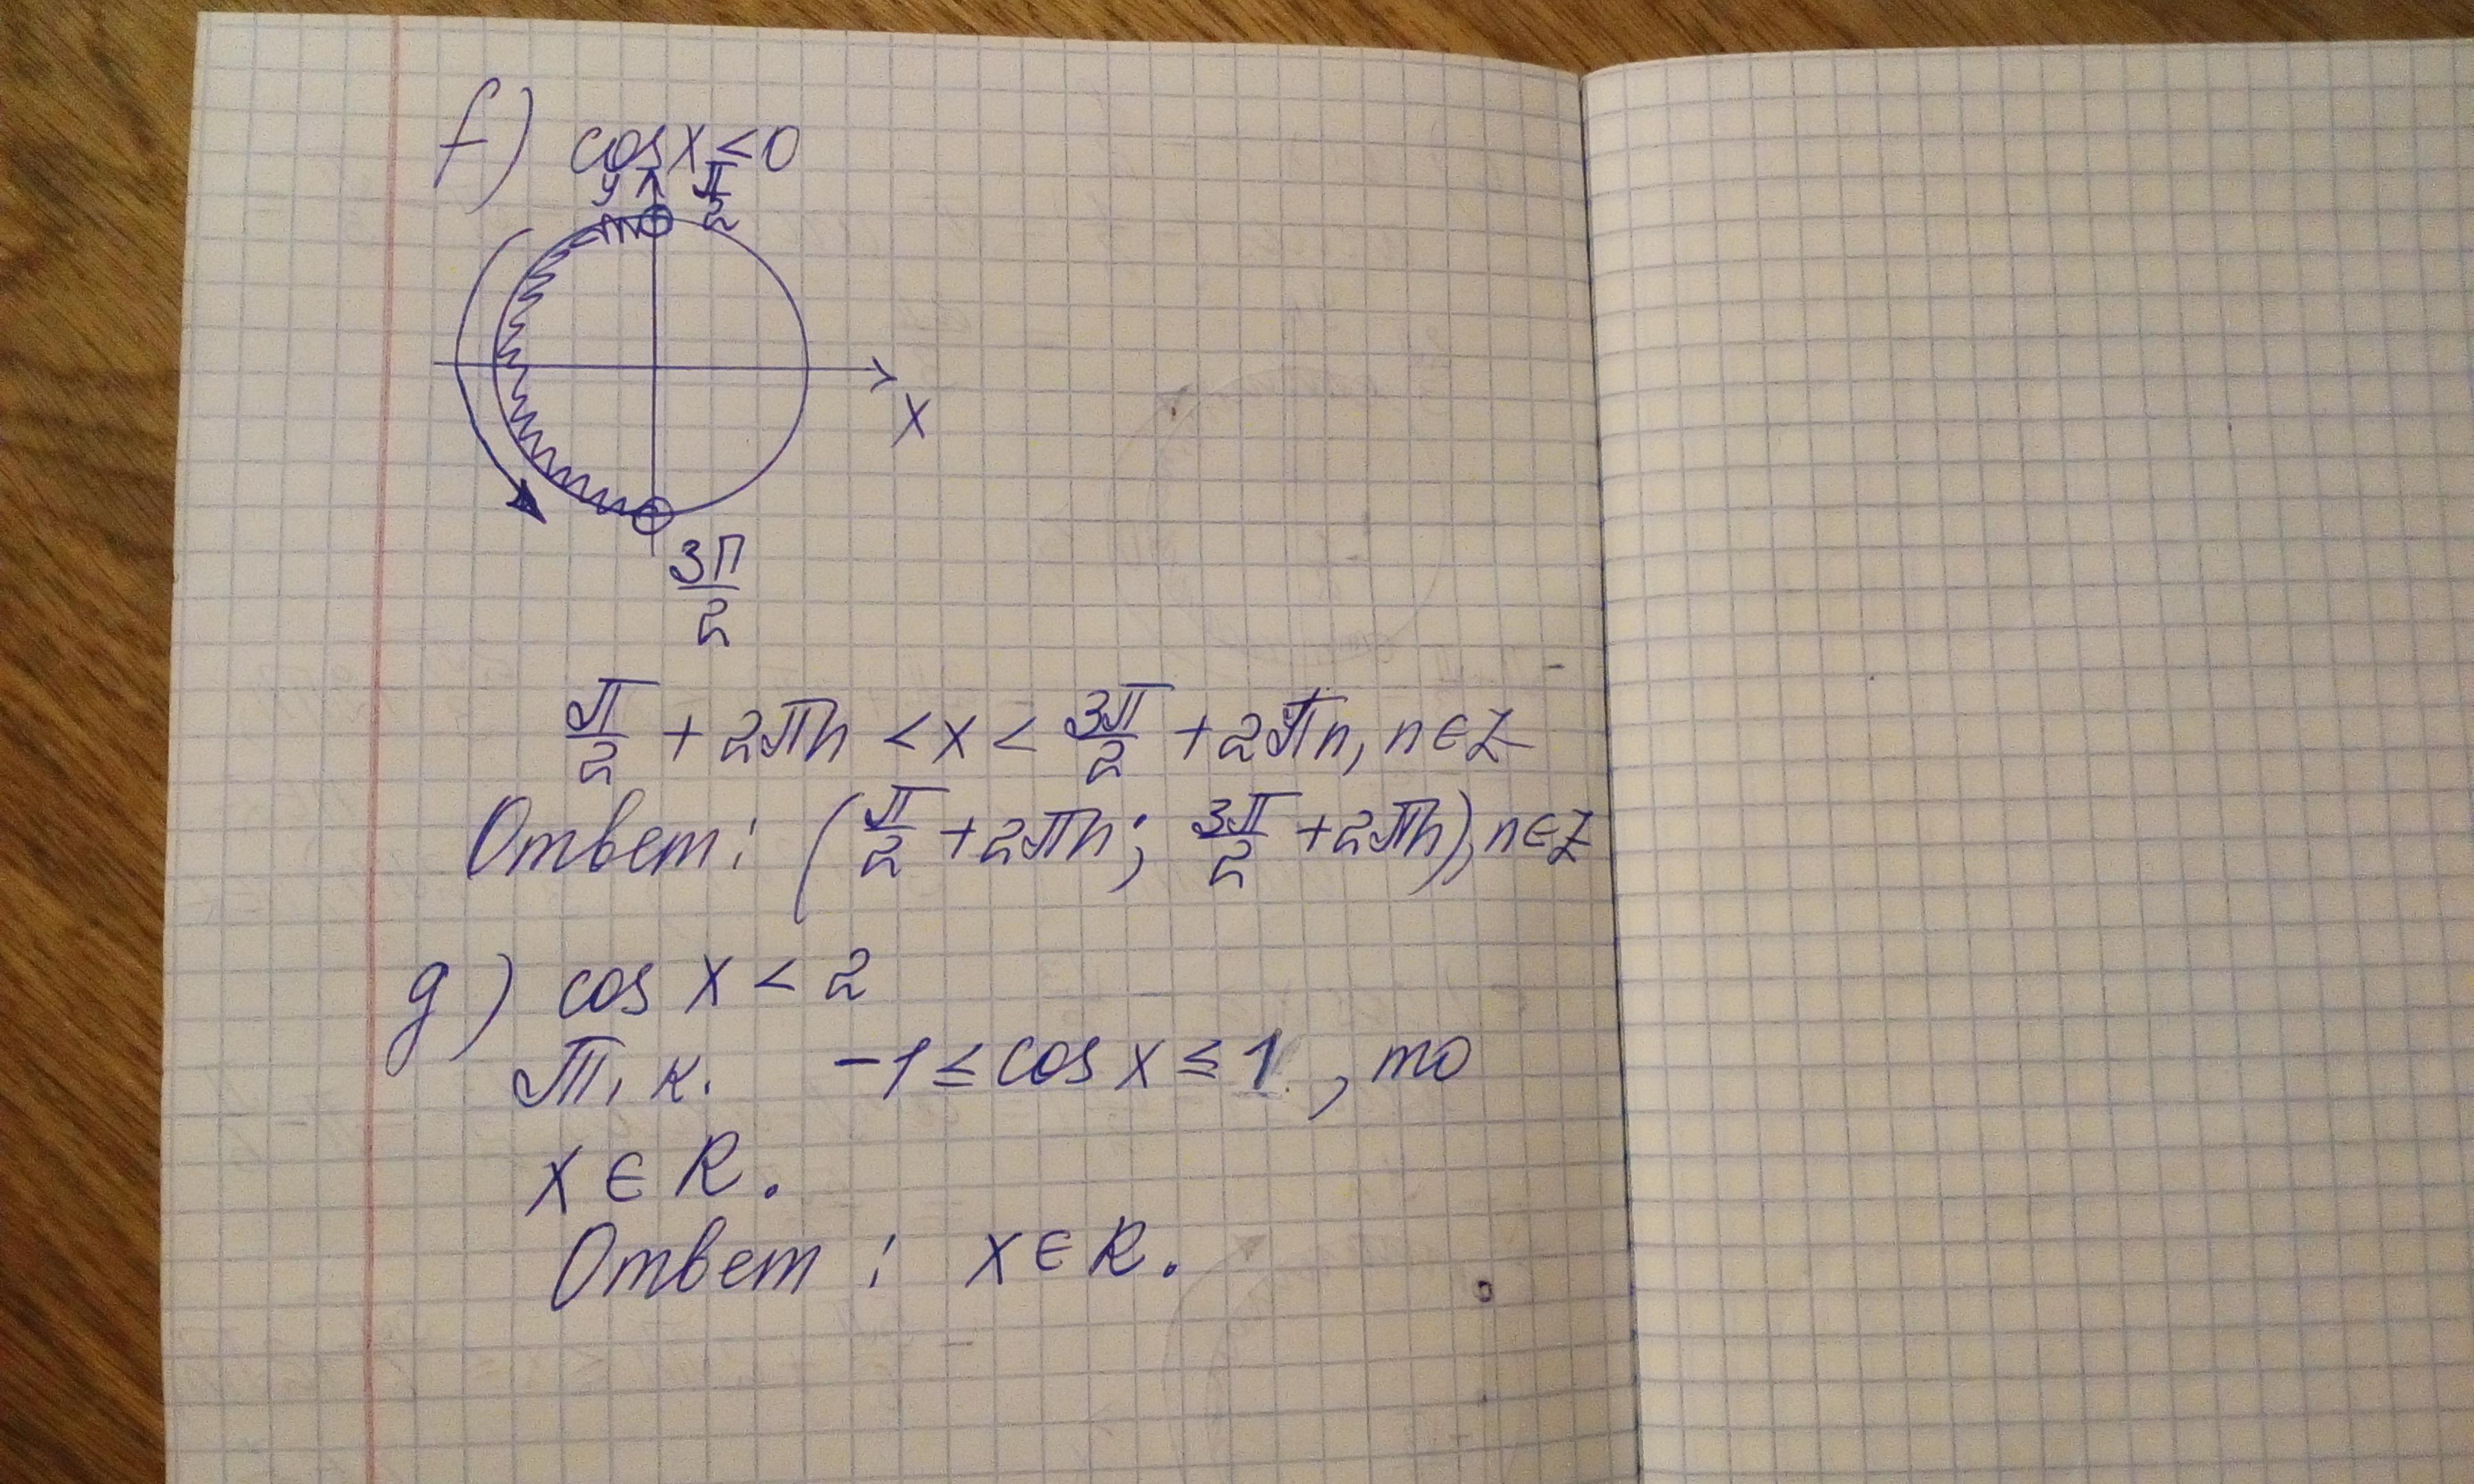 f) cos x < 0
y π/2
x
3π/2
π/2 + 2πn < x < 3π/2 + 2πn, n ∈ Z
Ответ: (π/2 + 2πn; 3π/2 + 2πn), n ∈ Z
g) cos x < 2
Т. к. -1 ≤ cos x ≤ 1, то
x ∈ R.
Ответ: x ∈ R.